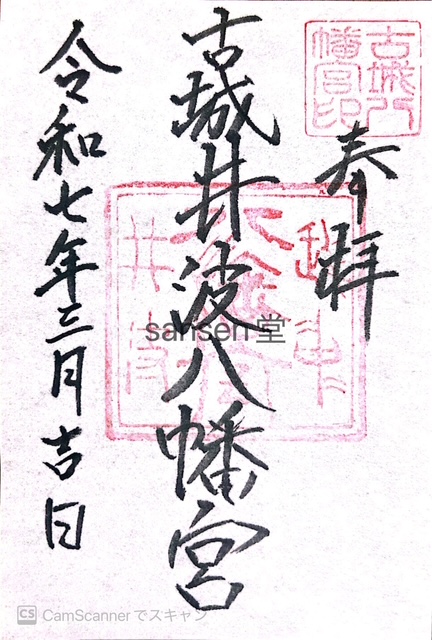 古城八
幡宮印
奉拝
古城井波八幡宮
令和七年三月吉日
越中
井波
sansen堂
CS CamScannerでスキャン